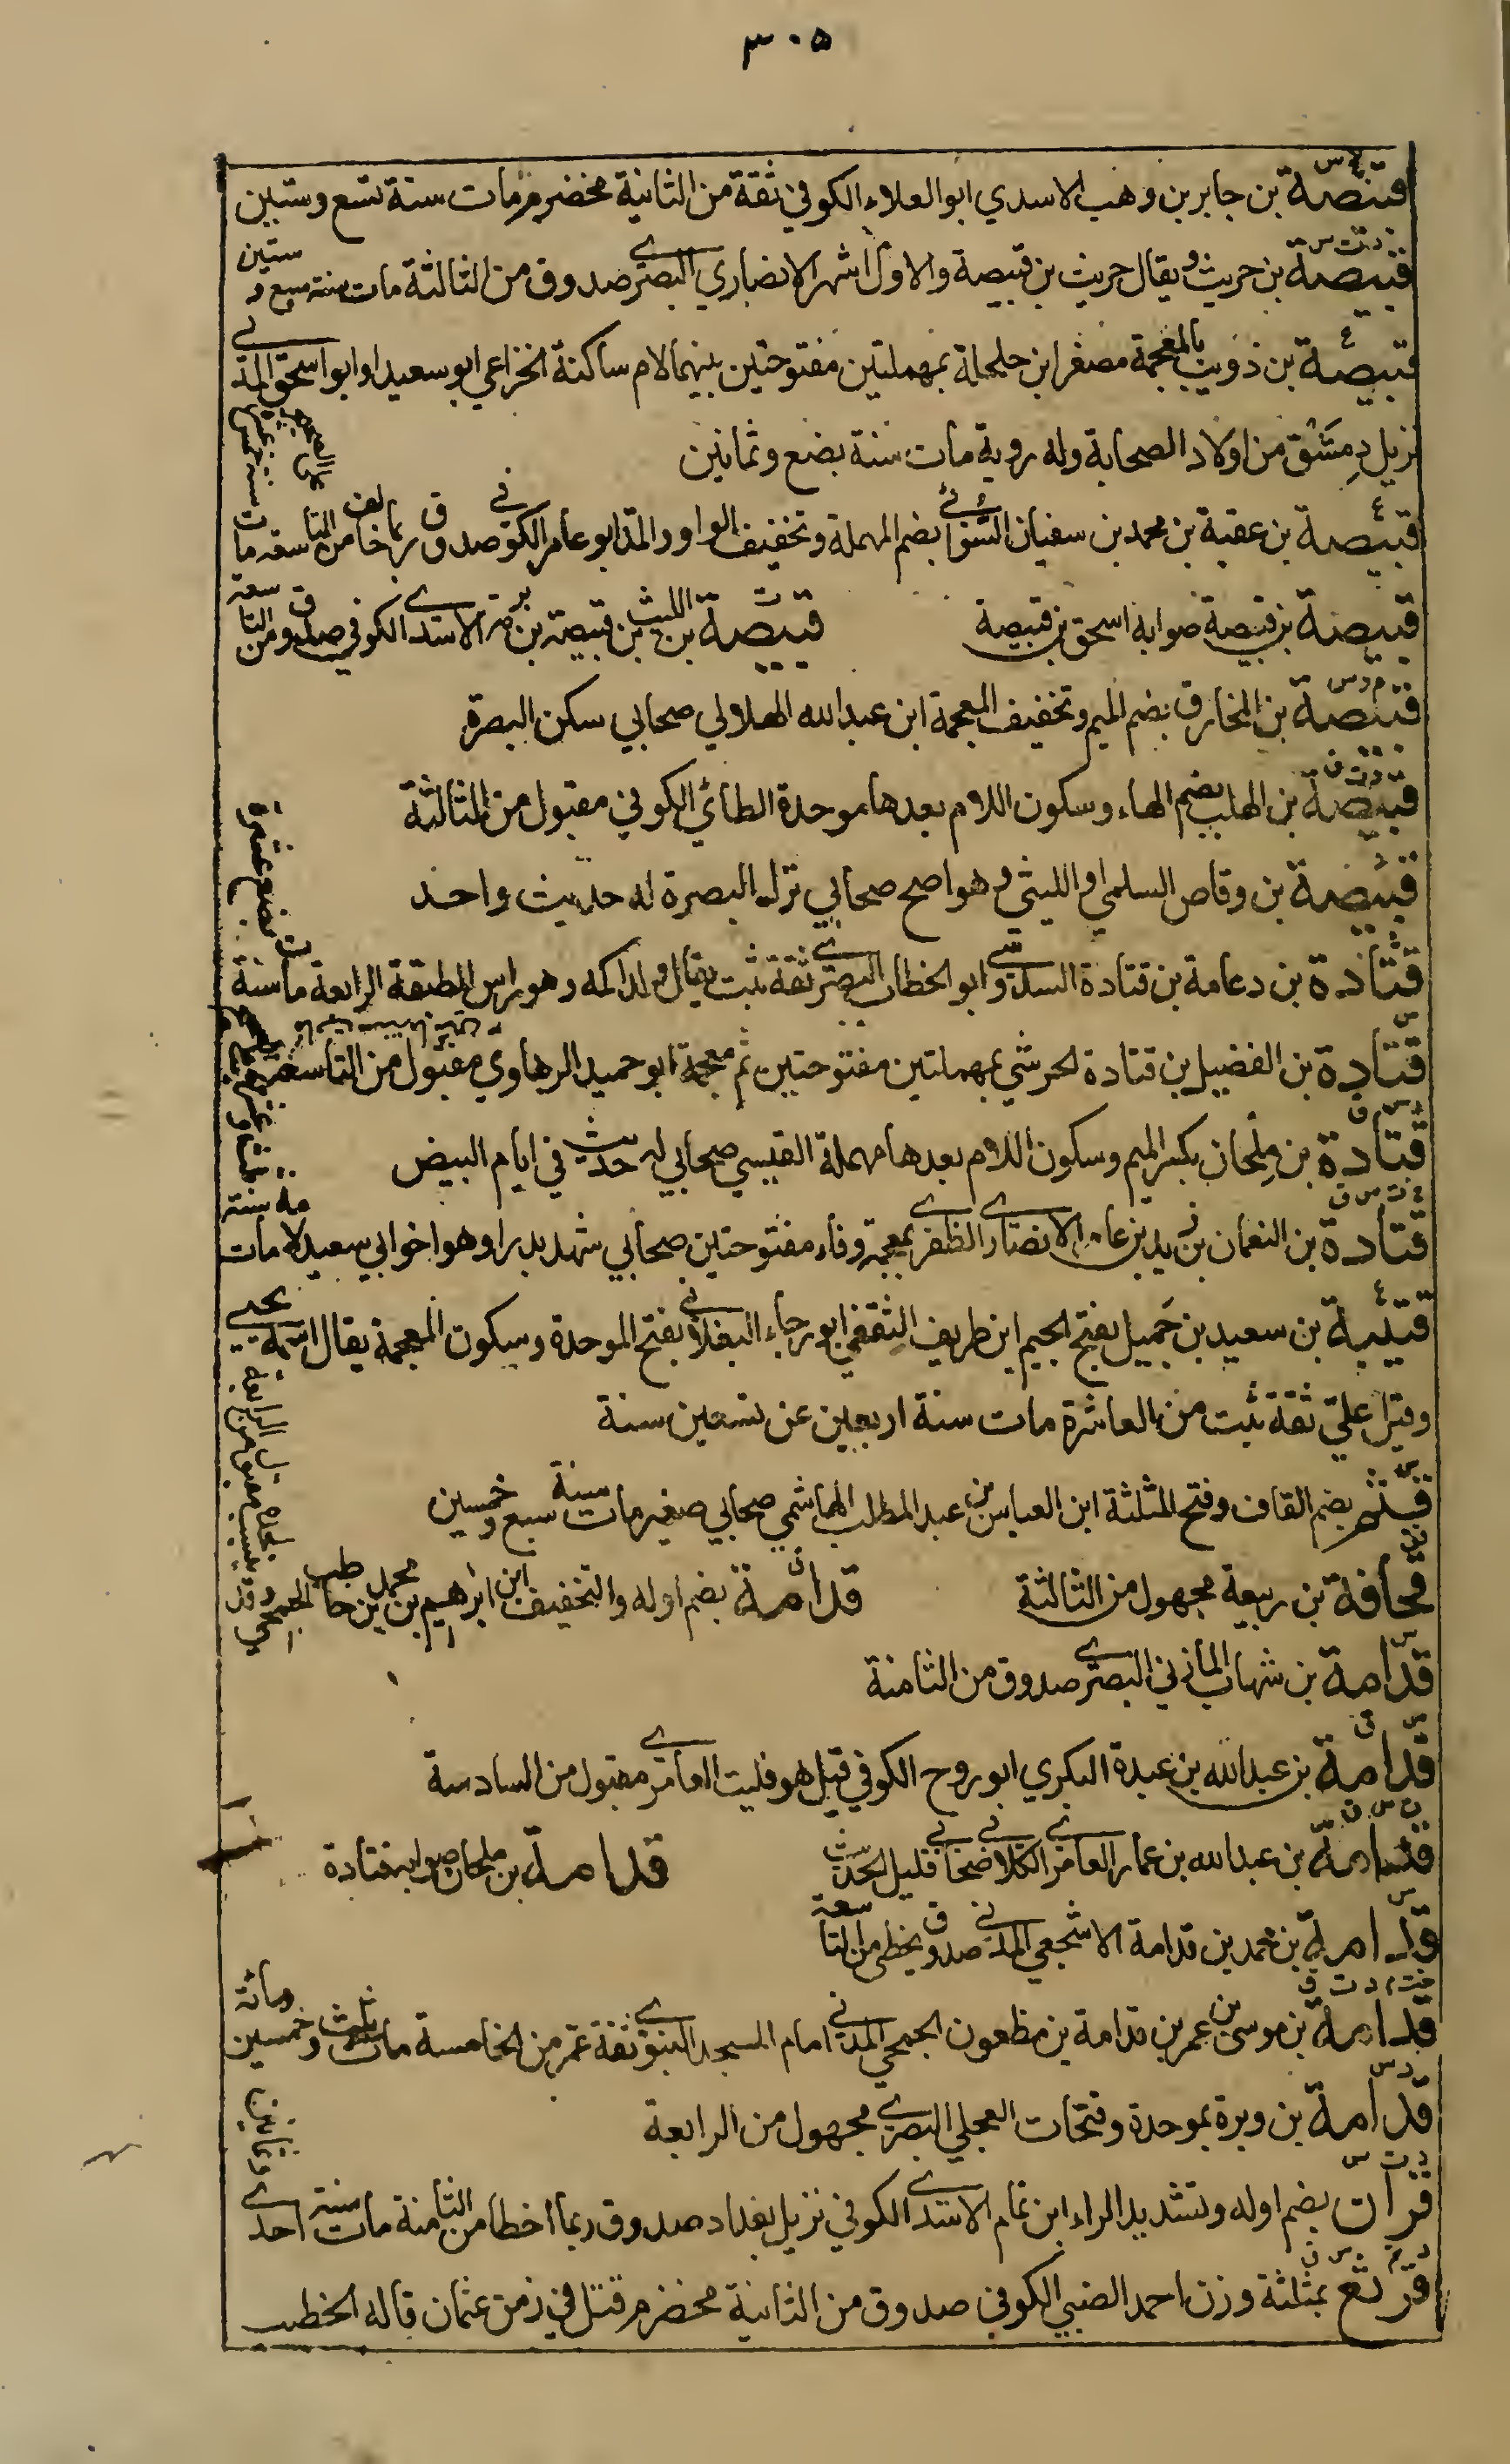 ٣٠٥
بخ س
قبيصة بن جابر بن وهب الاسدي ابو العلاء الكوفي ثقة من الثانية مخضرم مات سنة تسع وستين
ت س
قبيصة بن حريث ويقال حريث بن قبيصة والاول اشهر الانصاري البصري صدوق من الثالثة مات سنة سبع وستين
ع
قبيصة بن ذويب بالمعجمة مصغر ابن حلحلة بمهملتين مفتوحتين بينهما لام ساكنة الخزاعي ابو سعيد او ابو اسحق المدني
نزيل دِمَشْق من اولاد الصحابة وله روية مات سنة بضع وثمانين
ع
قبيصة بن عقبة بن محمد بن سفيان السُّوَائي بضم المهملة وتخفيف الواو والمد ابو عامر الكوفي صدوق ربما خالف من التاسعة مات سنة خمس عشرة على الصحيح
قبيصة بن قبيصة صوابه اسحق بن قبيصة
ت
قبيصة بن الليث بن قبيصة بن برمة الاسدي الكوفي صدوق من التاسعة
م د س
قبيصة بن المخارق بضم الميم وتخفيف المعجمة ابن عبدالله الهلالي صحابي سكن البصرة
د ت ق
قبيصة بن الهلب بضم الهاء وسكون اللام بعدها موحدة الطائي الكوفي مقبول من الثالثة
د
قبيصة بن وقاص السلمي او الليثي وهو اصح صحابي نزل البصرة له حديث واحد
ع
قتادة بن دعامة بن قتادة السدوسي ابو الخطاب البصري ثقة ثبت يقال ولد اكمه وهو راس الطبقة الرابعة مات سنة بضع عشرة
س
قتادة بن الفضيل بن قتادة الحرشي بمهملتين مفتوحتين ثم معجمة ابو حميد الرهاوي مقبول من التاسعة
د س ق
قتادة بن مِلْحان بكسر الميم وسكون اللام بعدها مهملة القيسي صحابي له حديث في ايام البيض
خ ت س ق
قتادة بن النعمان بن زيد بن عامر الانصاري الظفري بمعجمة وفاء مفتوحتين صحابي شهد بدرا وهو اخو ابي سعيد لامه مات سنة ثلث وعشرين على الصحيح
ع
قتيبة بن سعيد بن جَميل بفتح الجيم ابن طريف الثقفي ابو رجاء البغلاني بفتح الموحدة وسكون المعجمة يقال اسمه يحيى
وقيل علي ثقة ثبت من العاشرة مات سنة اربعين عن تسعين سنة
س
قثم بضم القاف وفتح المثلثة ابن العباس بن عبد المطلب الهاشمي صحابي صغير مات سنة سبع وخمسين
قحافة بن ربيعة مجهول من الثالثة
ق
قدامة بضم اوله والتخفيف ابن ابراهيم بن محمد بن حاطب الجمحي وقد ينسب لجده مقبول من الرابعة
س
قدامة بن شهاب المازني البصري صدوق من الثامنة
س ق
قدامة بن عبدالله بن عبدة البكري ابو روح الكوفي قيل هو فليت العامري مقبول من السادسة
ت س ق
قدامة بن عبدالله بن عمار العامري الكلابي صحابي قليل الحديث
قدامة بن ملحان صوابه قتادة
س
قدامة بن محمد بن قدامة الاشجعي المدني صدوق يخطي من التاسعة
خت م د ت ق
قدامة بن موسى بن عمر بن قدامة بن مظعون الجمحي المدني امام المسجد النبوي ثقة عمر من الخامسة مات ثلث وخمسين ومائة
د س
قدامة بن وبرة بموحدة وفتحات العجلي البصري مجهول من الرابعة
د ت س
قران بضم اوله وتشديد الراء ابن تمام الاسدي الكوفي نزيل بغداد صدوق ربما اخطا من الثامنة مات سنة احدى وثمانين
قرثع بمثلثة وزن احمد الضبي الكوفي صدوق من الثانية مخضرم قتل في زمن عثمان قاله الخطيب